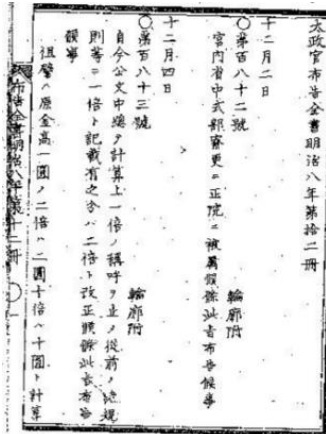 太政官布告全書明治八年第拾二冊
十二月二日
○第百八十二號 輪廓附
宮内省中式部寮更ニ正院ニ被屬候條此旨布告候事
十二月四日
○第百八十三號 輪廓附
自今公文中總テ計算上一倍ノ稱呼ヲ止メ從前ノ諸規
則等ニ一倍ト記載有之分ハ二倍ト改正候條此旨布告
候事
但譬ハ原金高一圓ノ二倍ハ二圓十倍ハ十圓ト計算
布告全書明治八年第十二冊 ○ 一